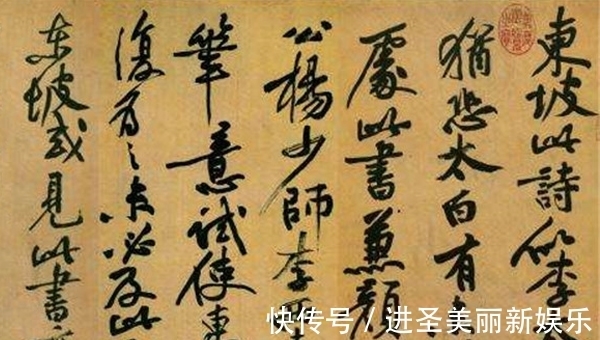 東坡此詩似李
猶恐太白有
處此書兼顏
公楊少師李
筆意試使東
復為之未必及此
東坡或見此書
快传号 / 进圣美丽新娱乐